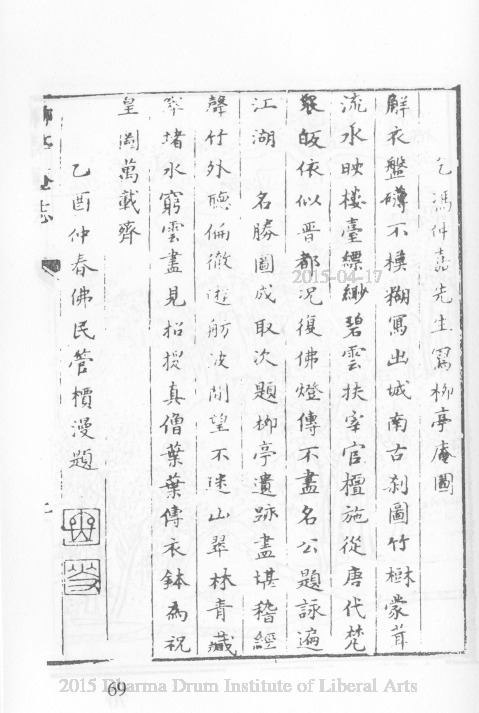 乞馮仲嘉先生寫柳亭庵圖
解衣盤礴不模糊寫出城南古刹圖竹樹蒙茸
流水映樓臺縹緲碧雲扶宰官檀施從唐代梵
皈依似晋都况復佛燈傳不盡名公題詠遍
江湖 名勝圖成取次題柳亭遺跡盡堪稽經
聲竹外聽偏徹遊舫波間望不迷山翠林青藏
窣堵水窮雲盡見招提真僧葉葉傳衣鉢為祝
皇圖萬載齊
乙酉仲春佛民管櫝漫題
2015-04-17
69
2015 Dharma Drum Institute of Liberal Arts